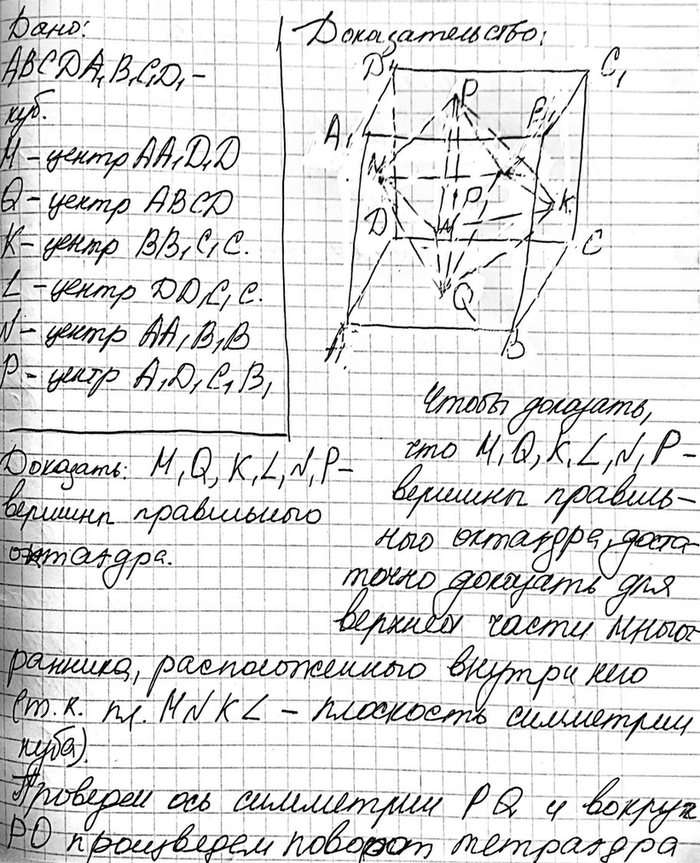 Дано:
ABCDA₁B₁C₁D₁ –
куб.
M – центр AA₁D₁D
Q – центр ABCD
K – центр BB₁C₁C.
L – центр DD₁C₁C.
N – центр AA₁B₁B
P – центр A₁D₁C₁B₁
Доказать: M, Q, K, L, N, P –
вершины правильного
октаэдра.
Доказательство:
D₁
C₁
P
B₁
A₁
N
K
O
D
M
C
Q
A
B
Чтобы доказать,
что M, Q, K, L, N, P –
вершины правиль-
ного октаэдра, доста-
точно доказать для
верхней части много-
гранника, расположенного внутри него
(т.к. пл. MNKL – плоскость симметрии
куба).
Проведем ось симметрии PQ и вокруг
PO произведем поворот тетраэдра